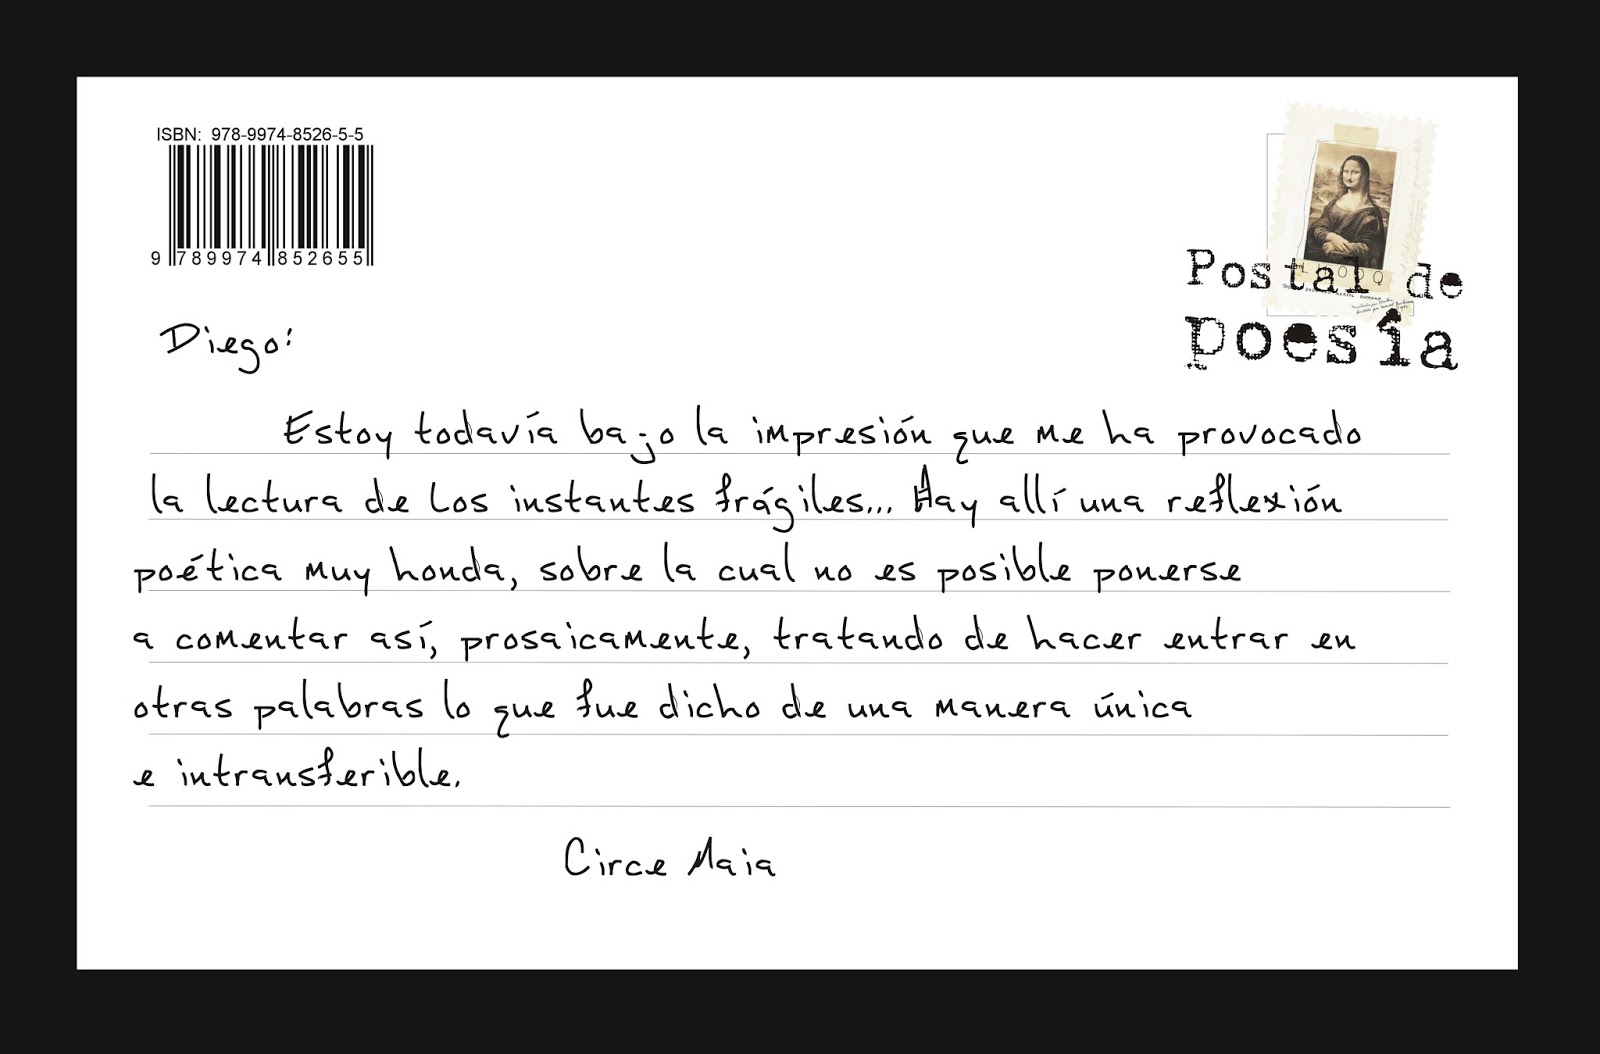 ISBN: 978-9974-8526-5-5
9 789974 852655
L.H.O.O.Q
Postal de
poesía
Diego:
Estoy todavía bajo la impresión que me ha provocado
la lectura de Los instantes frágiles... Hay allí una reflexión
poética muy honda, sobre la cual no es posible ponerse
a comentar así, prosaicamente, tratando de hacer entrar en
otras palabras lo que fue dicho de una manera única
e intransferible.
Circe Maia